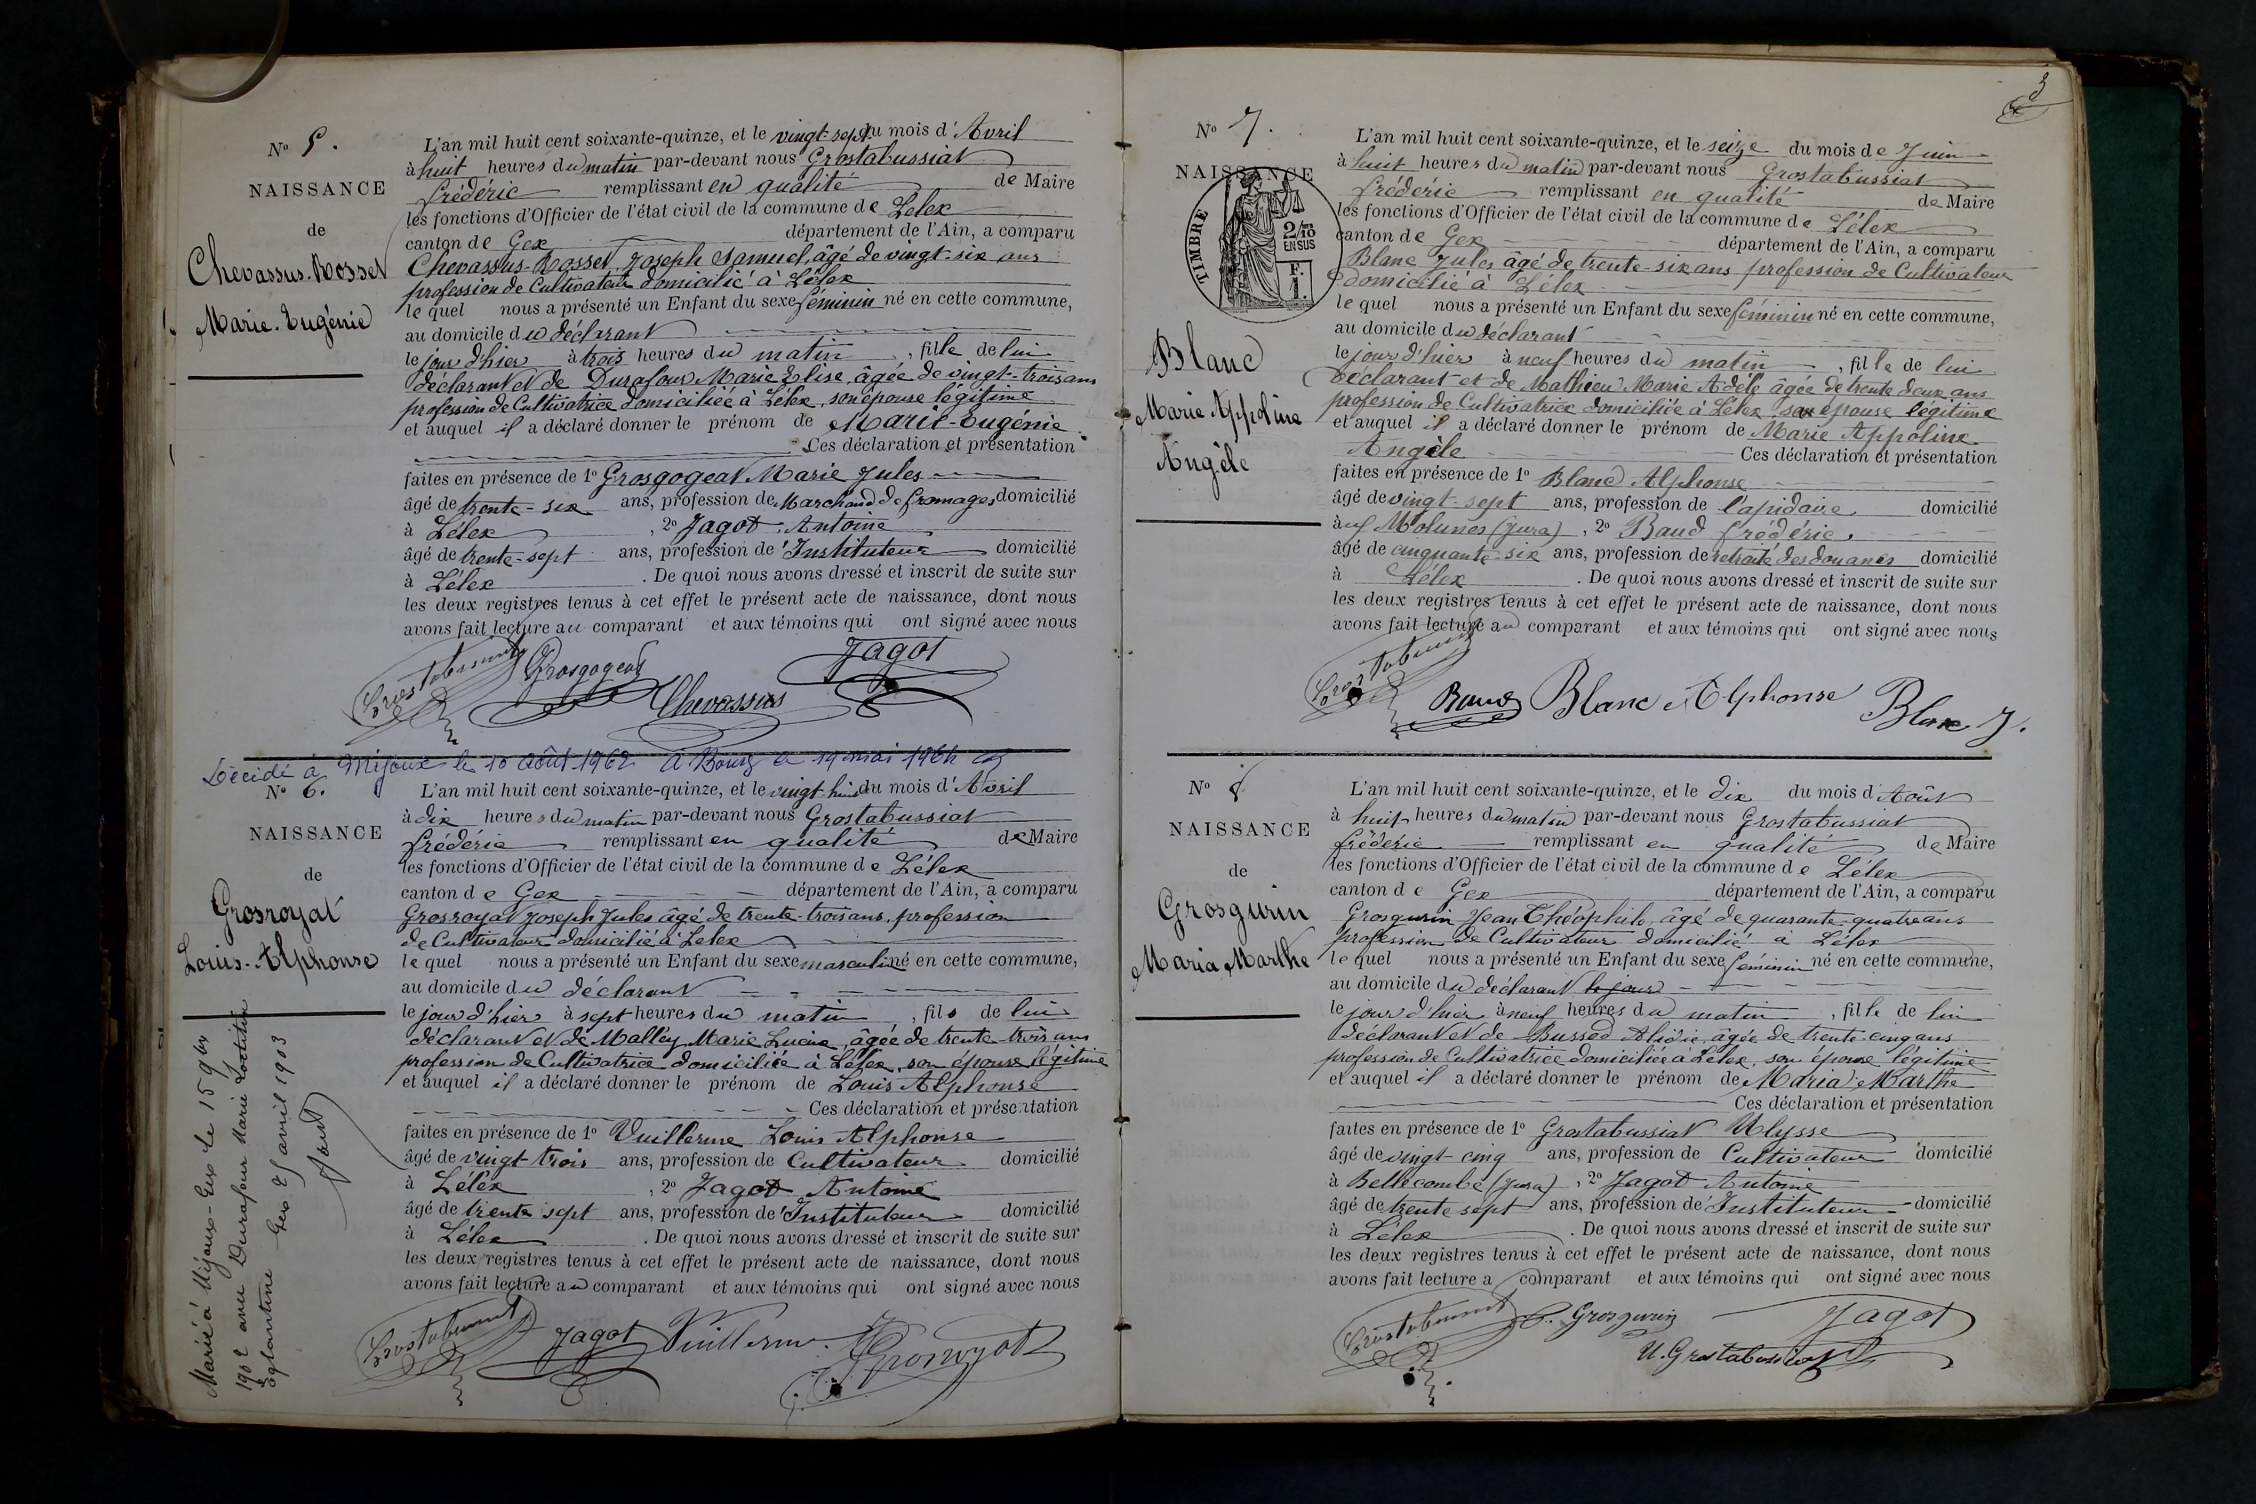 N° 5.
NAISSANCE
de
Chevassus-Rosset
Marie-Eugénie
L'an mil huit cent soixante-quinze, et le vingt-sept du mois d'Avril
à huit heures du matin par-devant nous Grostabussiat
frédéric remplissant en qualité de Maire
les fonctions d'Officier de l'état civil de la commune de Lelex
canton de Gex département de l'Ain, a comparu
Chevassus-Rosset Joseph Samuel, âgé de vingt-six ans
profession de Cultivateur domicilié à Lélex
le quel nous a présenté un Enfant du sexe féminin né en cette commune,
au domicile du déclarant
le jour d'hier à trois heures du matin, fille de lui
déclarant et de Durafour Marie Elise, âgée de vingt-trois ans
profession de Cultivatrice domiciliée à Lélex, son épouse légitime
et auquel il a déclaré donner le prénom de Marie-Eugénie
Ces déclaration et présentation
faites en présence de 1° Grosgogeat Marie Jules
âgé de trente-six ans, profession de Marchand de fromages domicilié
à Lélex, 2° Jagot Antoine
âgé de trente-sept ans, profession de Instituteur domicilié
à Lélex. De quoi nous avons dressé et inscrit de suite sur
les deux registres tenus à cet effet le présent acte de naissance, dont nous
avons fait lecture au comparant et aux témoins qui ont signé avec nous
Grostabussiat Grosgogeat Chevassus Jagot
Décidé à Mijoux le 10 août 1962 à Bourg le 19 mai 1964
N° 6.
NAISSANCE
de
Grosroyat
Louis-Alphonse
Marié à Mijoux-Gex le 15 9bre
1902 avec Durafour Marie
Eglantine Gex 25 avril 1903
L'an mil huit cent soixante-quinze, et le vingt huit du mois d'Avril
à dix heures du matin par-devant nous Grostabussiat
frédéric remplissant en qualité de Maire
les fonctions d'Officier de l'état civil de la commune de Lélex
canton de Gex département de l'Ain, a comparu
Grosroyat Joseph Jules âgé de trente-trois ans, profession
de Cultivateur domicilié à Lelex
le quel nous a présenté un Enfant du sexe masculin né en cette commune,
au domicile du déclarant
le jour d'hier à sept heures du matin, fils de lui
déclarant et de Malley Marie Lucine, âgée de trente-trois ans
profession de Cultivatrice domiciliée à Lélex, son épouse légitime
et auquel il a déclaré donner le prénom de Louis Alphonse
Ces déclaration et présentation
faites en présence de 1° Vuillerme Louis Alphonse
âgé de vingt-trois ans, profession de Cultivateur domicilié
à Lélex, 2° Jagot Antoine
âgé de trente sept ans, profession de Instituteur domicilié
à Lélex. De quoi nous avons dressé et inscrit de suite sur
les deux registres tenus à cet effet le présent acte de naissance, dont nous
avons fait lecture au comparant et aux témoins qui ont signé avec nous
Grostabussiat Jagot Vuillerme Grosroyat
3
N° 7.
NAISSANCE
TIMBRE
2/10 EN SUS
F. 1.
Blanc
Marie Appoline
Angèle
L'an mil huit cent soixante-quinze, et le seize du mois de Juin
à huit heures du matin par-devant nous Grostabussiat
frédéric remplissant en qualité de Maire
les fonctions d'Officier de l'état civil de la commune de Lélex
canton de Gex département de l'Ain, a comparu
Blanc Jules âgé de trente-six ans profession de Cultivateur
domicilié à Lélex
le quel nous a présenté un Enfant du sexe féminin né en cette commune,
au domicile du déclarant
le jour d'hier à neuf heures du matin, fille de lui
déclarant et de Mathieu Marie Adèle âgée de trente deux ans
profession de Cultivatrice domiciliée à Lélex son épouse légitime
et auquel il a déclaré donner le prénom de Marie Appoline
Angèle Ces déclaration et présentation
faites en présence de 1° Blanc Alphonse
âgé de vingt-sept ans, profession de lapidaire domicilié
aux Molunes (Jura), 2° Baud frédéric
âgé de cinquante-six ans, profession de retraité des douanes domicilié
à Lélex. De quoi nous avons dressé et inscrit de suite sur
les deux registres tenus à cet effet le présent acte de naissance, dont nous
avons fait lecture au comparant et aux témoins qui ont signé avec nous
Grostabussiat Baud Blanc Alphonse Blanc J.
N° 8
NAISSANCE
de
Grosgurin
Maria Marthe
L'an mil huit cent soixante-quinze, et le dix du mois d'Août
à huit heures du matin par-devant nous Grostabussiat
frédéric remplissant en qualité de Maire
les fonctions d'Officier de l'état civil de la commune de Lélex
canton de Gex département de l'Ain, a comparu
Grosgurin Jean Théophile, âgé de quarante-quatre ans
profession de Cultivateur domicilié à Lélex
le quel nous a présenté un Enfant du sexe féminin né en cette commune,
au domicile du déclarant le jour
le jour d'hier à neuf heures du matin, fille de lui
déclarant et de Bussod Alidie, âgée de trente-cinq ans
profession de Cultivatrice domiciliée à Lélex, son épouse légitime
et auquel il a déclaré donner le prénom de Maria-Marthe
Ces déclaration et présentation
faites en présence de 1° Grostabussiat Ulysse
âgé de vingt-cinq ans, profession de Cultivateur domicilié
à Bellecombe (Jura), 2° Jagot Antoine
âgé de trente sept ans, profession de Instituteur domicilié
à Lélex. De quoi nous avons dressé et inscrit de suite sur
les deux registres tenus à cet effet le présent acte de naissance, dont nous
avons fait lecture a comparant et aux témoins qui ont signé avec nous
Grostabussiat Grosgurin Jagot
U. Grostabussiat